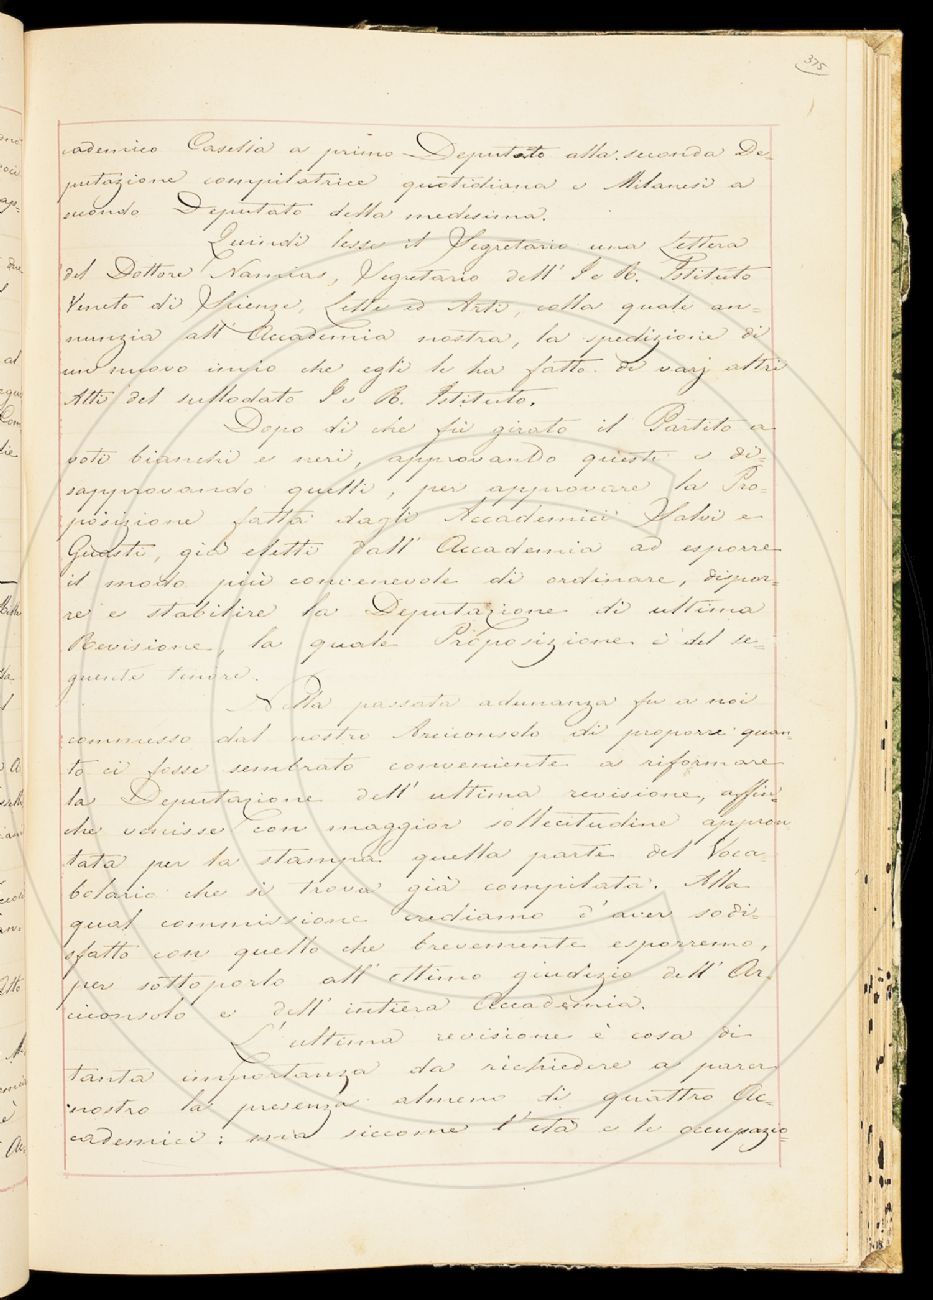 375
cademico Casella a primo Deputato alla seconda De-
putazione compilatrice quotidiana e Milanesi a
secondo Deputato della medesima.
Quindi lesse il Segretario una Lettera
del Dottore Namias, Segretario dell' I e R. Istituto
Veneto di Scienze, Lette ed Arti, colla quale an-
nunzia all' Accademia nostra, la spedizione di
un nuovo invio che egli le ha fatto di varj altri
Atti del sullodato I e R. Istituto.
Dopo di che fù girato il Partito a
voti bianchi e neri, approvando questi e di-
sapprovando quelli, per approvare la Pro-
posizione fatta dagli Accademici Salvi e
Guasti, già eletti dall' Accademia ad esporre
il modo più convenevole di ordinare, dispor-
re e stabilire la Deputazione di ultima
Revisione, la quale Proposizione è del se-
guente tenore.
Nella passata adunanza fu a noi
commesso dal nostro Arciconsolo di proporre quan-
to ci fosse sembrato conveniente a riformare
la Deputazione dell' ultima revisione, affin-
che venisse con maggior sollecitudine appron
tata per la stampa quella parte del Voca-
bolario che si trova già compilata. Alla
qual commissione crediamo d'aver sodi-
sfatto con quello che brevemente esporremo,
per sottoporlo all' ottimo giudizio dell' Ar-
ciconsolo e dell' intiera Accademia.
L'ultima revisione è cosa di
tanta importanza da richiedere a parer
nostro la presenza almeno di quattro Ac-
cademici: ma siccome l'età e le occupazio-